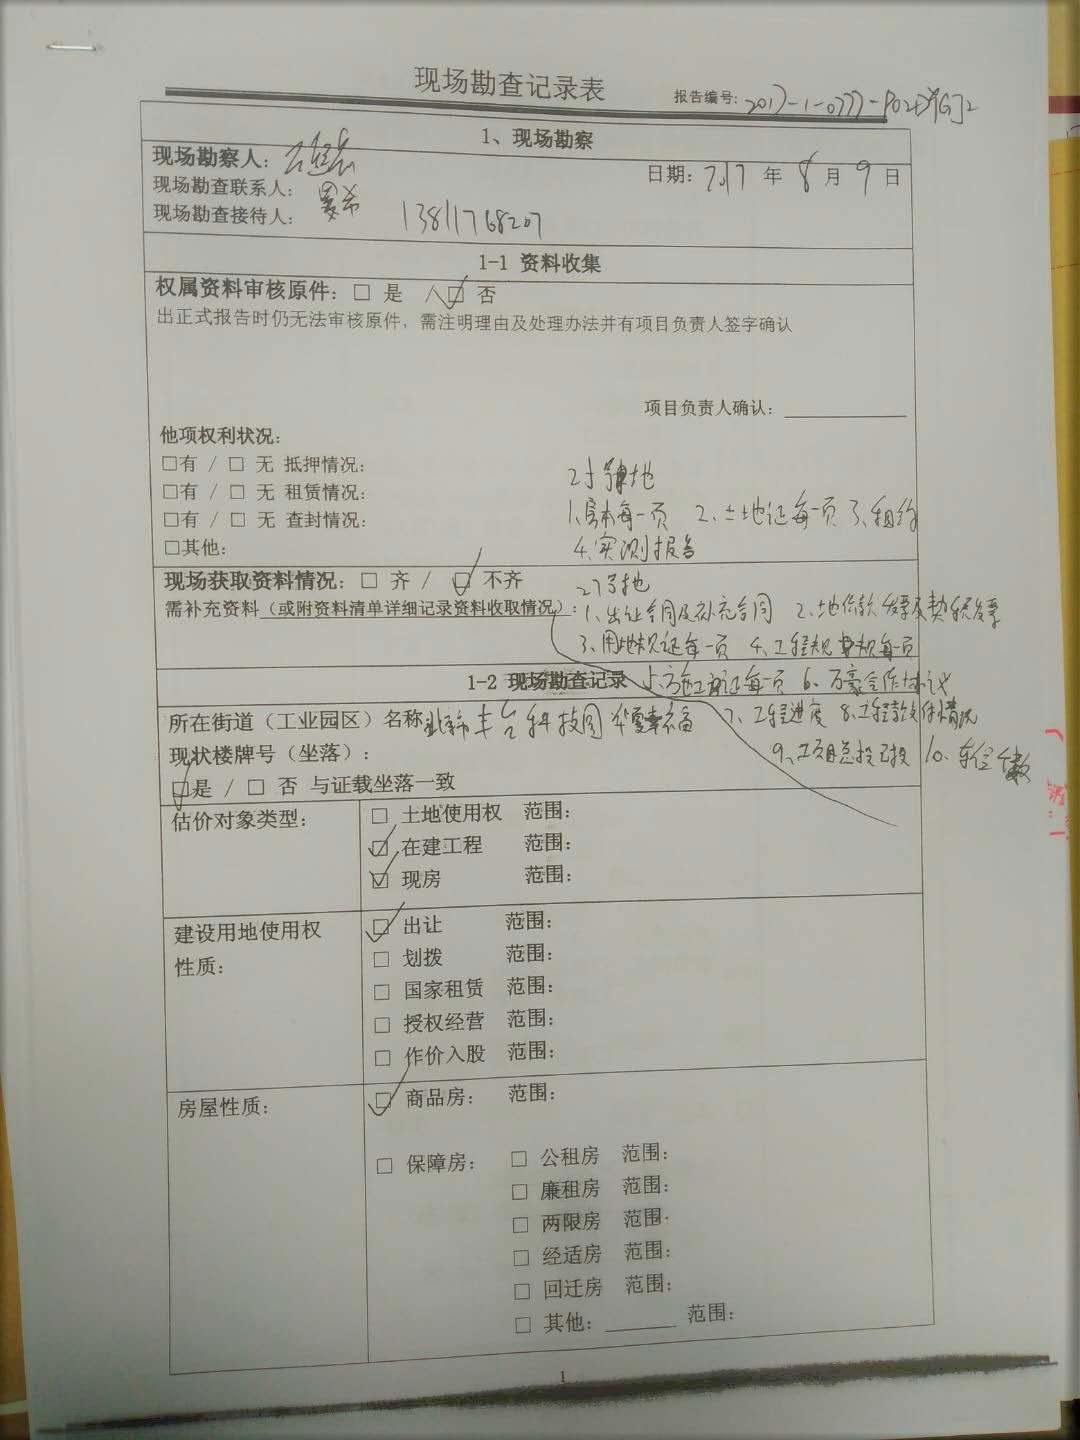 现场勘查记录表
报告编号: 2017-1-0777-P02
1、现场勘察
现场勘察人:
日期: 2017 年 8 月 9 日
现场勘查联系人:
现场勘查接待人: 13811768207
1-1 资料收集
权属资料审核原件: □ 是 □ 否
出正式报告时仍无法审核原件，需注明理由及处理办法并有项目负责人签字确认
项目负责人确认:
他项权利状况:
□有 / □ 无 抵押情况:
□有 / □ 无 租赁情况:
1、房本每一页 2、土地证每一页 3、租约
□有 / □ 无 查封情况:
□其他:
4、实测报告
现场获取资料情况: □ 齐 / □ 不齐
27号地
需补充资料(或附资料清单详细记录资料收取情况):
1、出让合同及补充合同 2、地价款发票及契税发票
3、用地规证每一页 4、工程规每一页
1-2 现场勘查记录
5、施工证每一页 6、万豪合作协议
所在街道（工业园区）名称: 丰台科技园
7、工程进度 8、工程款支付情况
现状楼牌号（坐落）:
9、项目总投已投 10、车位个数
□是 / □ 否 与证载坐落一致
估价对象类型:
□ 土地使用权 范围:
□ 在建工程 范围:
□ 现房 范围:
建设用地使用权
性质:
□ 出让 范围:
□ 划拨 范围:
□ 国家租赁 范围:
□ 授权经营 范围:
□ 作价入股 范围:
房屋性质:
□ 商品房: 范围:
□ 保障房: □ 公租房 范围:
□ 廉租房 范围:
□ 两限房 范围:
□ 经适房 范围:
□ 回迁房 范围:
□ 其他: 范围:
1